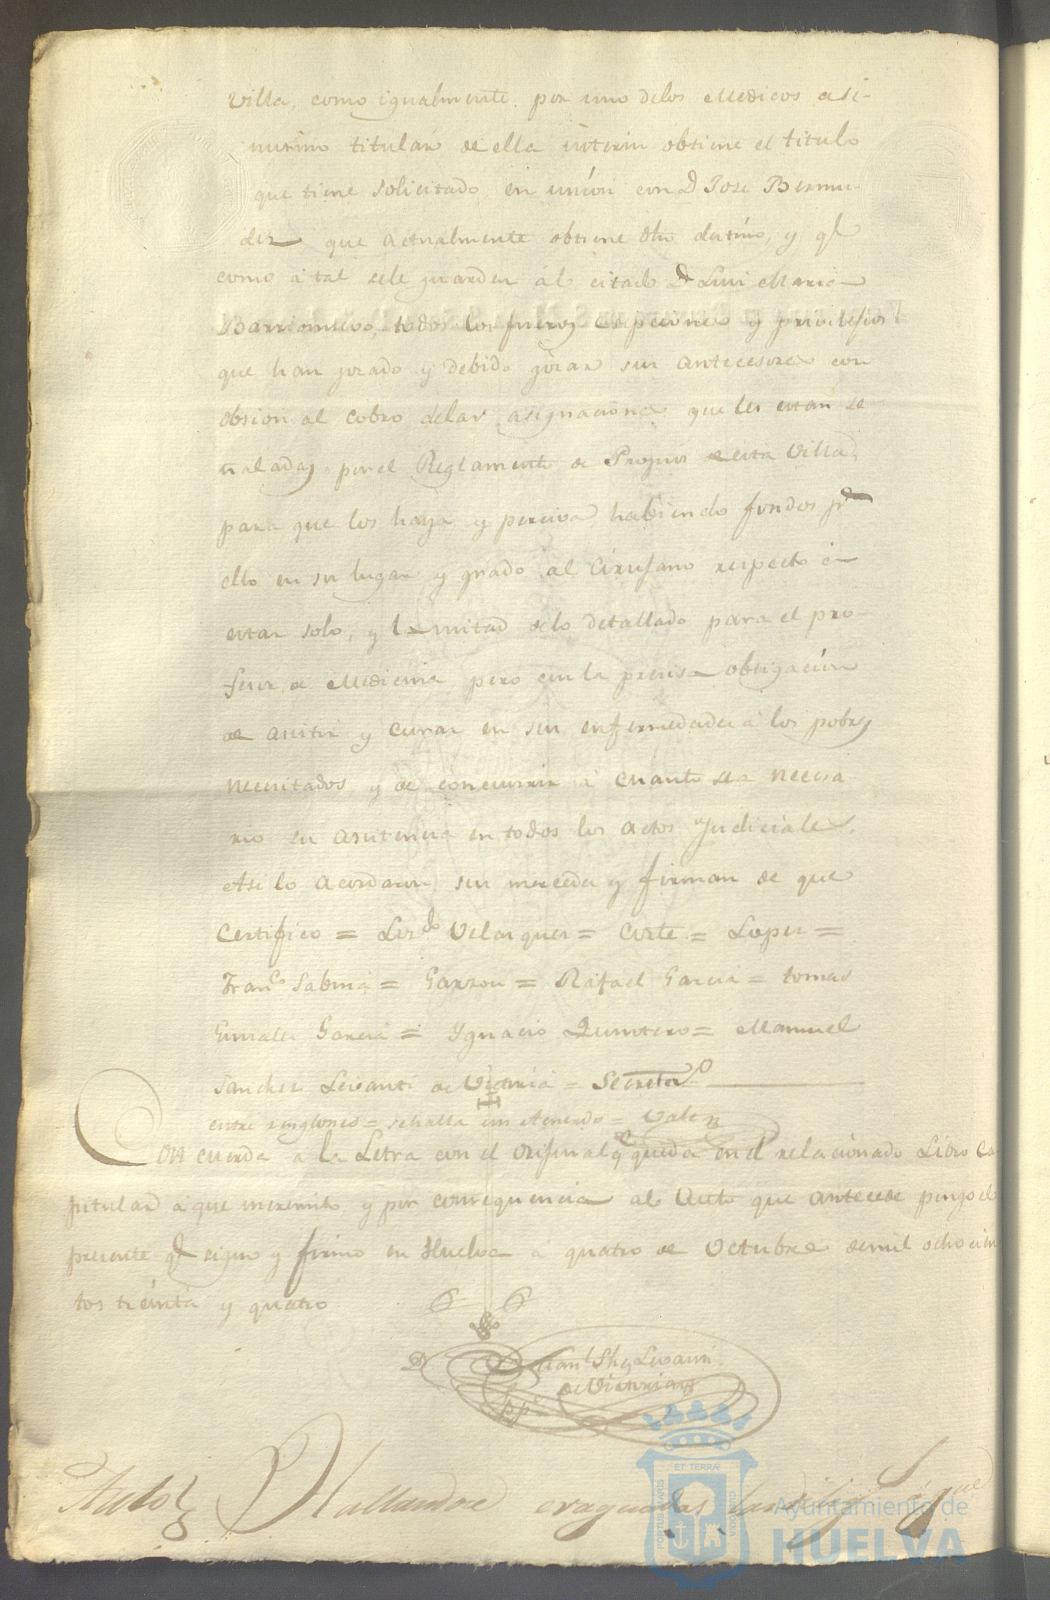 villa, como igualmente por uno delos Medicos asi-
mismo titular de ella interin obtiene el titulo
que tiene solicitado en unión con D. Jose Bermu-
dez que actualmente obtiene dho destino, y qe.
como á tal sele guarden al citado Dn. Luis Maria
Barrionuevo, todos los fueros esepciones y privilejios
que han gozado y debido gozar sus antecesores con
obsion al cobro delas asignaciones que les estan se
ñaladas por el Reglamento de Propios de esta Villa,
para que los haya y perciva habiendo fondos pa.
ello en su lugar y grado al Cirujano respecto á
estar solo, y la mitad delo detallado para el pro-
fesor de Medicina pero con la precisa obligación
de asistir y curar en sus enfermedades á los pobres
necesitados y de concurrir á cuanto sea necesa
rio su asistencia en todos los actos Judiciales.
Asi lo acordaron sus mercedes y firman de que
Certifico = Lizdo. Velazquez = Corte = Lopez =
Franco. Sabina = Garzon = Rafael Garcia = tomas
Gonzalez Garcia = Ygnacio Quintero = Manuel
Sanchez Lesanti de Victoria = Secreto.
entre renglones = se halla un Acuerdo = Vale
Concuerda a la Letra con el orijinal qe. queda en el relacionado Libro Ca
pitular á que me remito y por consequencia al Auto que antecede pongo el
presente qe. signo y firmo en Huelva á quatro de Octubre demil ochocien
tos treinta y quatro
Manl. Shz Lesanti
de Victoria
Auto Hallandose evaquadas
ET TERRÆ
PORTUS MARIS
CUSTODIA
Ayuntamiento de
HUELVA